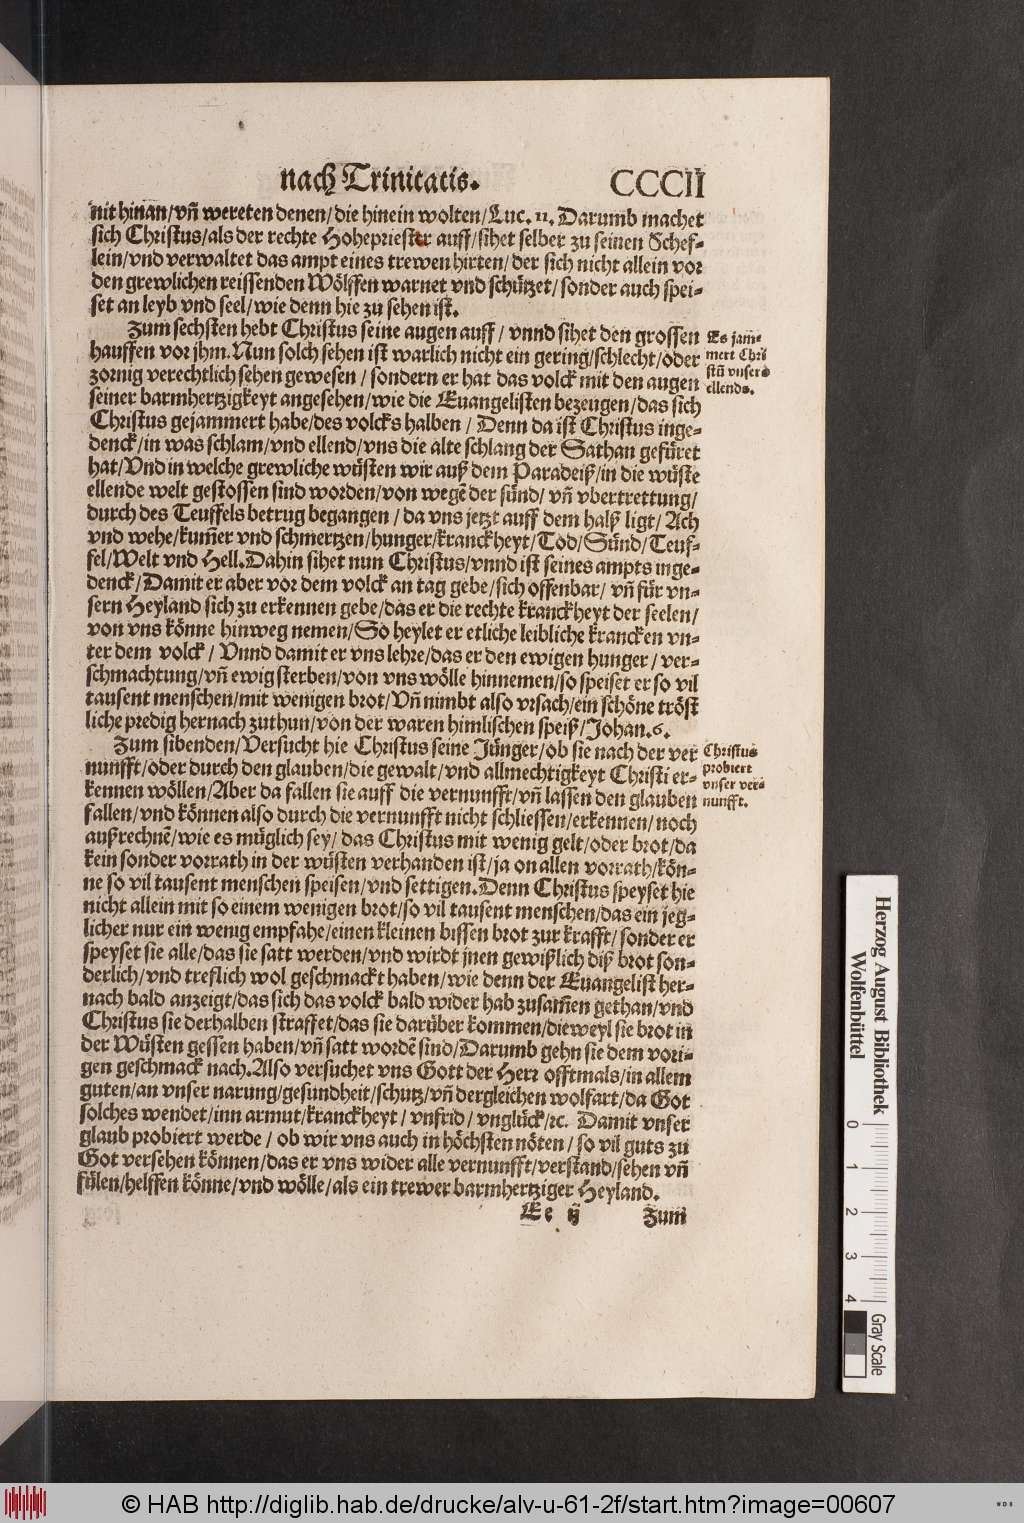 nach Trinitatis. CCCII
nit hinan/vñ wereten denen/die hinein wolten/Luc. 11. Darumb machet
sich Christus/als der rechte Hohepriester auff/sihet selber zu seinen Schef-
lein/vnd verwaltet das ampt eines trewen hirten/der sich nicht allein vor
den grewlichen reissenden Wölffen warnet vnd schützet/sonder auch spei-
set an leyb vnd seel/wie denn hie zu sehen ist.
Zum sechsten hebt Christus seine augen auff/vnnd sihet den grossen
hauffen vor jhm. Nun solch sehen ist warlich nicht ein gering/schlecht/oder
zornig verechtlich sehen gewesen/sondern er hat das volck mit den augen
seiner barmhertzigkeyt angesehen/wie die Euangelisten bezeugen/das sich
Christus gejammert habe/des volcks halben/Denn da ist Christus inge-
denck/in was schlam/vnd ellend/vns die alte schlang der Sathan gefüret
hat/Vnd in welche grewliche wüsten wir auß dem Paradeiß/in die wüste
ellende welt gestossen sind worden/von wegē der sünd/vñ vbertrettung/
durch des Teuffels betrug begangen/da vns jetzt auff dem halß ligt/Ach
vnd wehe/kum̄er vnd schmertzen/hunger/kranckheyt/Tod/Sünd/Teuf-
fel/Welt vnd Hell. Dahin sihet nun Christus/vnnd ist seines ampts inge-
denck/Damit er aber vor dem volck an tag gebe/sich offenbar/vñ für vn-
sern Heyland sich zu erkennen gebe/das er die rechte kranckheyt der seelen/
von vns könne hinweg nemen/So heylet er etliche leibliche krancken vn-
ter dem volck/Vnnd damit er vns lehre/das er den ewigen hunger/ver-
schmachtung/vñ ewig sterben/von vns wölle hinnemen/so speiset er so vil
tausent menschen/mit wenigen brot/Vñ nimbt also vrsach/ein schöne tröst
liche predig hernach zuthun/von der waren himlischen speiß/Johan. 6.
Es jam-
mert Chri
stū vnsers
ellends.
Zum sibenden/Versucht hie Christus seine Jünger/ob sie nach der ver
nunfft/oder durch den glauben/die gewalt/vnd allmechtigkeyt Christi er-
kennen wöllen/Aber da fallen sie auff die vernunfft/vñ lassen den glauben
fallen/vnd können also durch die vernunfft nicht schliessen/erkennen/noch
außrechnē/wie es müglich sey/das Christus mit wenig gelt/oder brot/da
kein sonder vorrath in der wüsten verhanden ist/ja on allen vorrath/kön-
ne so vil tausent menschen speisen/vnd settigen. Denn Christus speyset hie
nicht allein mit so einem wenigen brot/so vil tausent menschen/das ein jeg-
licher nur ein wenig empfahe/einen kleinen bissen brot zur krafft/sonder er
speyset sie alle/das sie satt werden/vnd wirdt jnen gewißlich diß brot son-
derlich/vnd treflich wol geschmackt haben/wie denn der Euangelist her-
nach bald anzeigt/das sich das volck bald wider hab zusam̄en gethan/vnd
Christus sie derhalben straffet/das sie darüber kommen/dieweyl sie brot in
der Wüsten gessen haben/vñ satt wordē sind/Darumb gehn sie dem vori-
gen geschmack nach. Also versuchet vns Gott der Herr offtmals/in allem
guten/an vnser narung/gesundheit/schutz/vñ dergleichen wolfart/da Got
solches wendet/inn armut/kranckheyt/vnfrid/vnglück/ꝛc. Damit vnser
glaub probiert werde/ob wir vns auch in höchsten nöten/so vil guts zu
Got versehen können/das er vns wider alle vernunfft/verstand/sehen vñ
fülen/helffen könne/vnd wölle/als ein trewer barmhertziger Heyland.
Christus
probiert
vnser ver-
nunfft.
Ee ij Zum
Herzog August Bibliothek
Wolfenbüttel
0 1 2 3 4
Gray Scale
© HAB http://diglib.hab.de/drucke/alv-u-61-2f/start.htm?image=00607